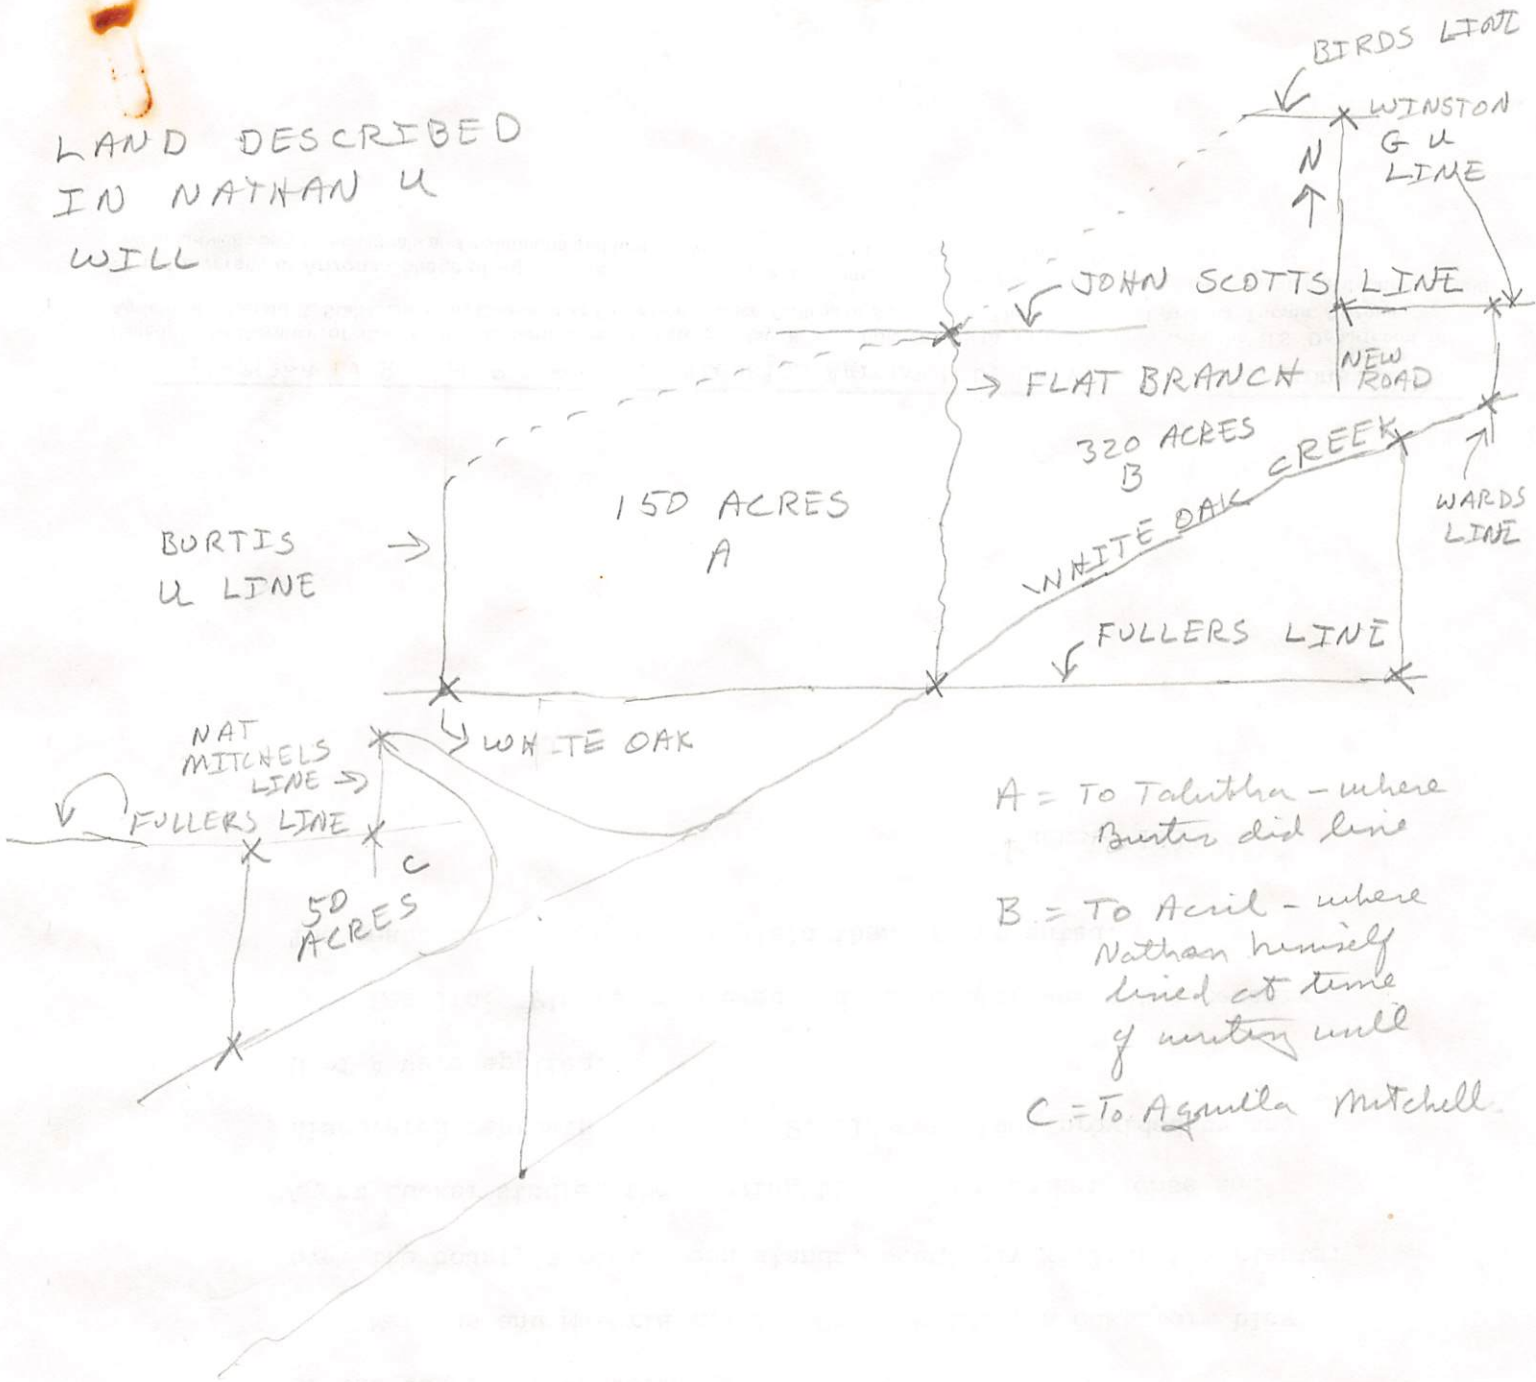 LAND DESCRIBED
IN NATHAN U
WILL
BIRDS LINE
WINSTON
G U
LINE
N
JOHN SCOTTS LINE
FLAT BRANCH
NEW
ROAD
320 ACRES
B
WHITE OAK CREEK
WARDS
LINE
150 ACRES
A
BURTIS
U LINE
FULLERS LINE
WHITE OAK
NAT
MITCHELS
LINE
FULLERS LINE
C
50
ACRES
A = To Tabitha - where
Burtis did line
B = To Acril - where
Nathan himself
lined at time
of writing will
C = To Aquilla Mitchell